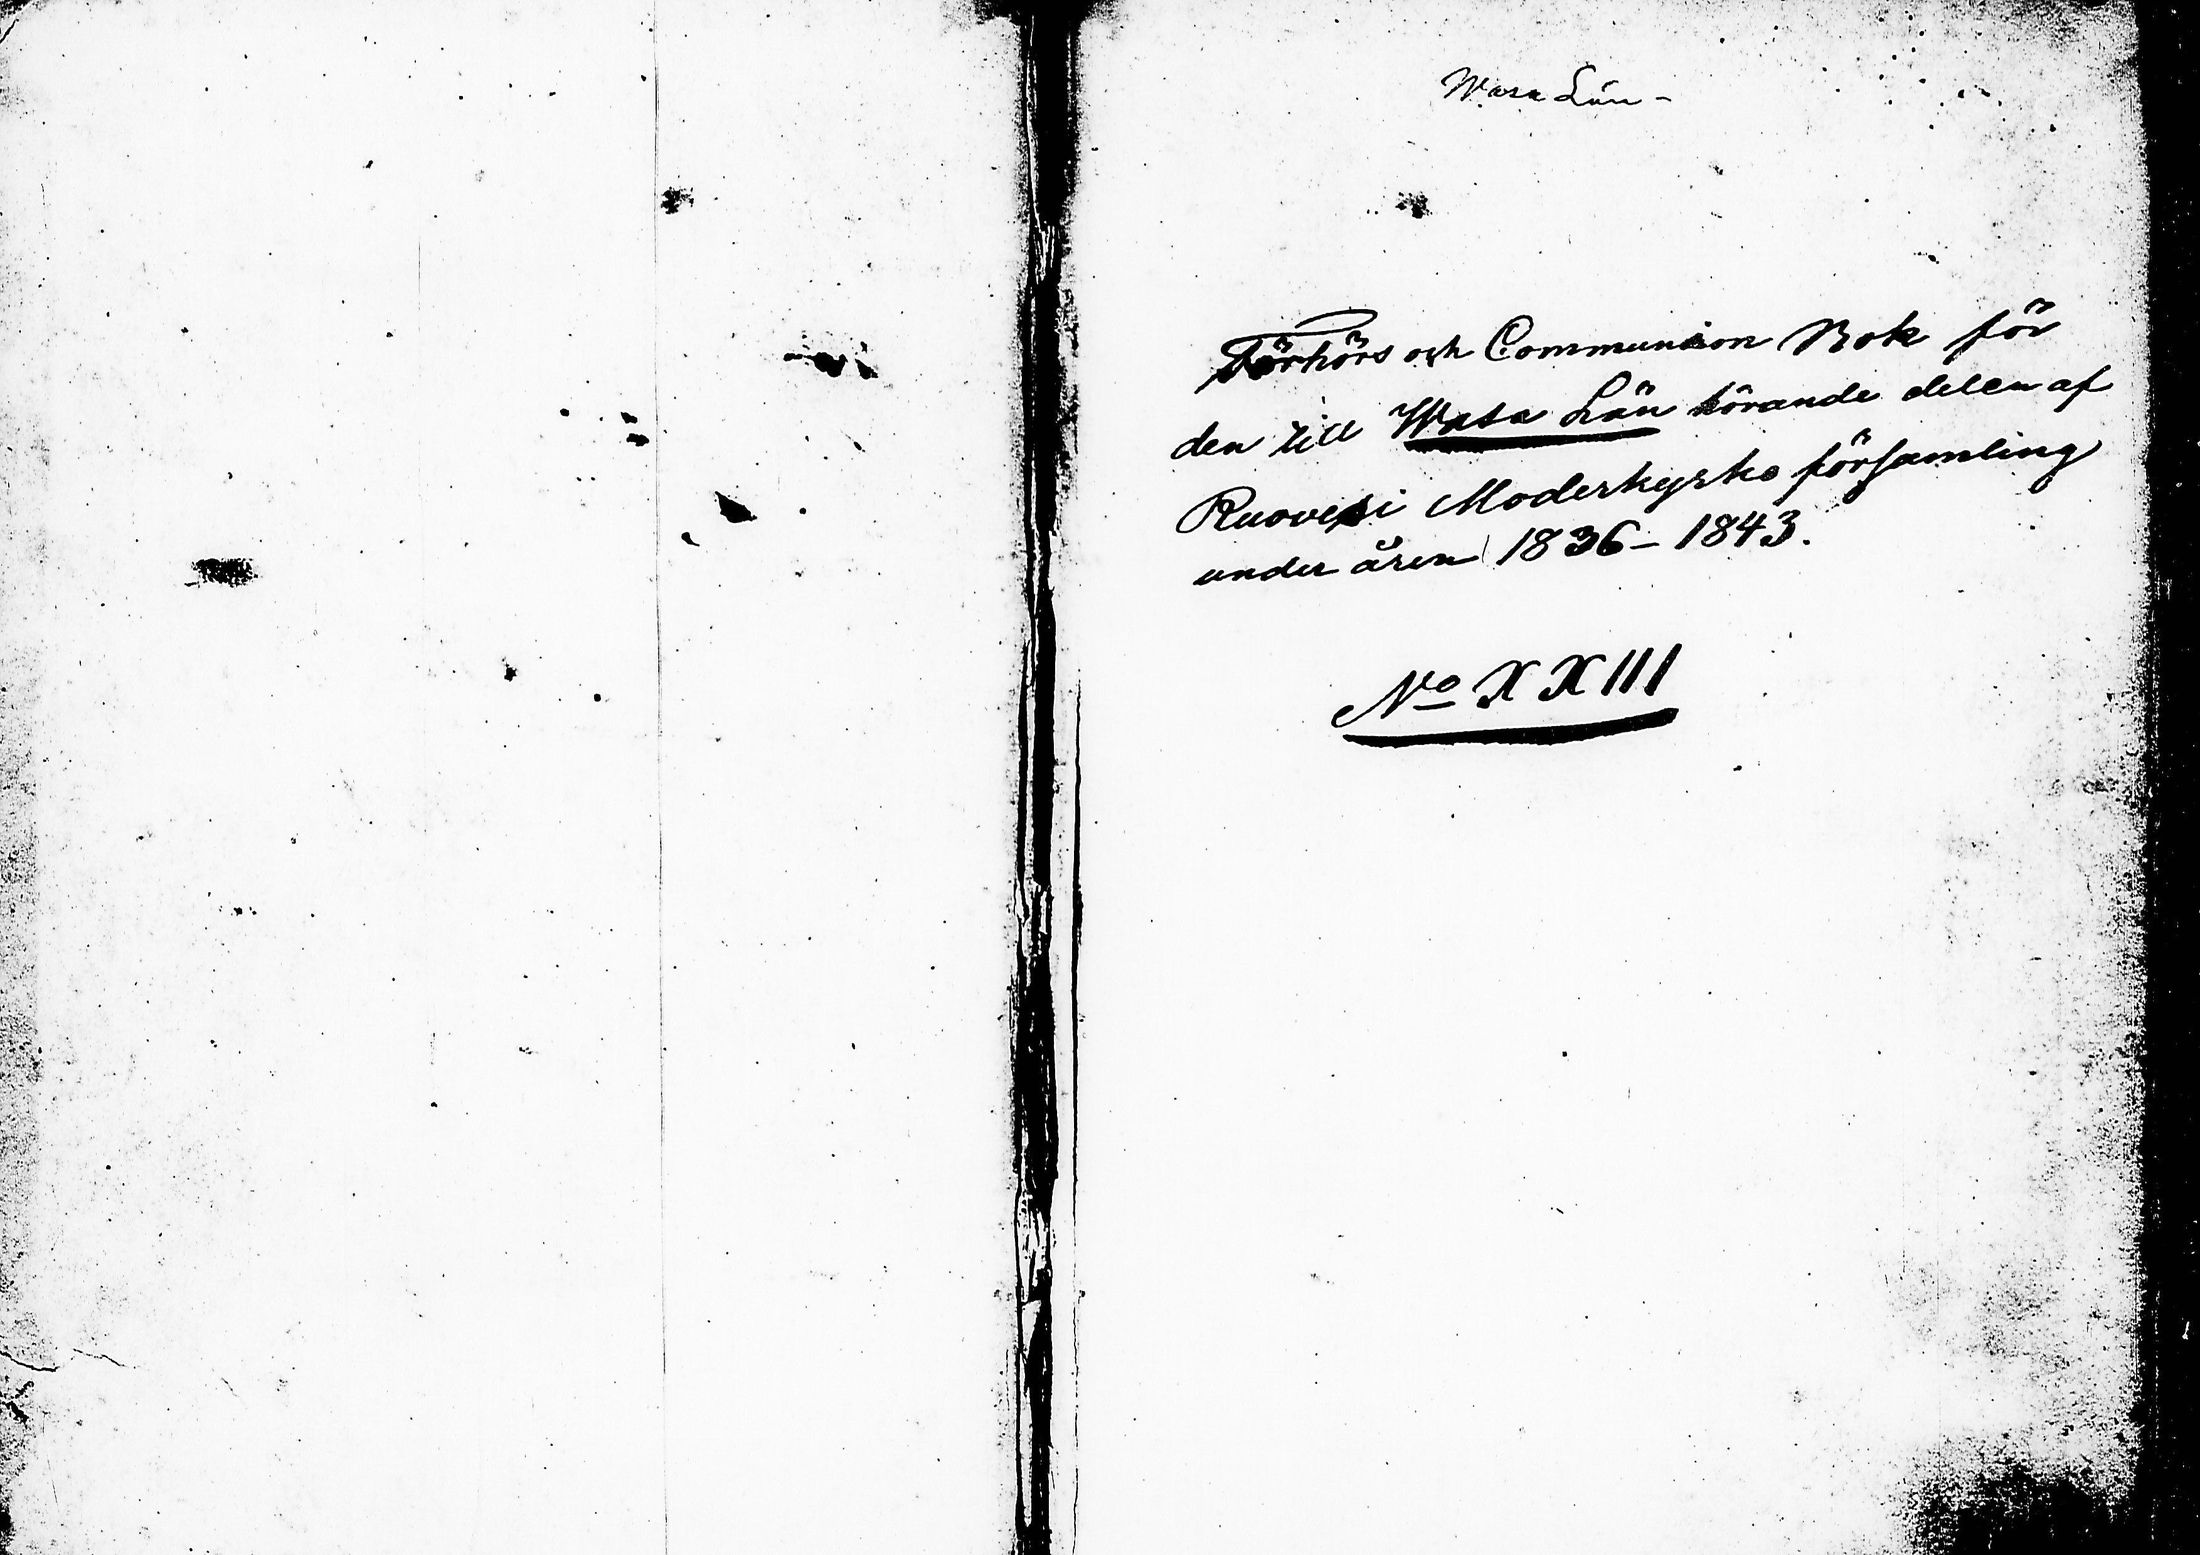 Wasa Län –
Förhörs och Communion Bok för
den till Wasa Län hörande delen af
Ruovesi Moderkyrko församling
under åren 1836–1843.
No XXIII